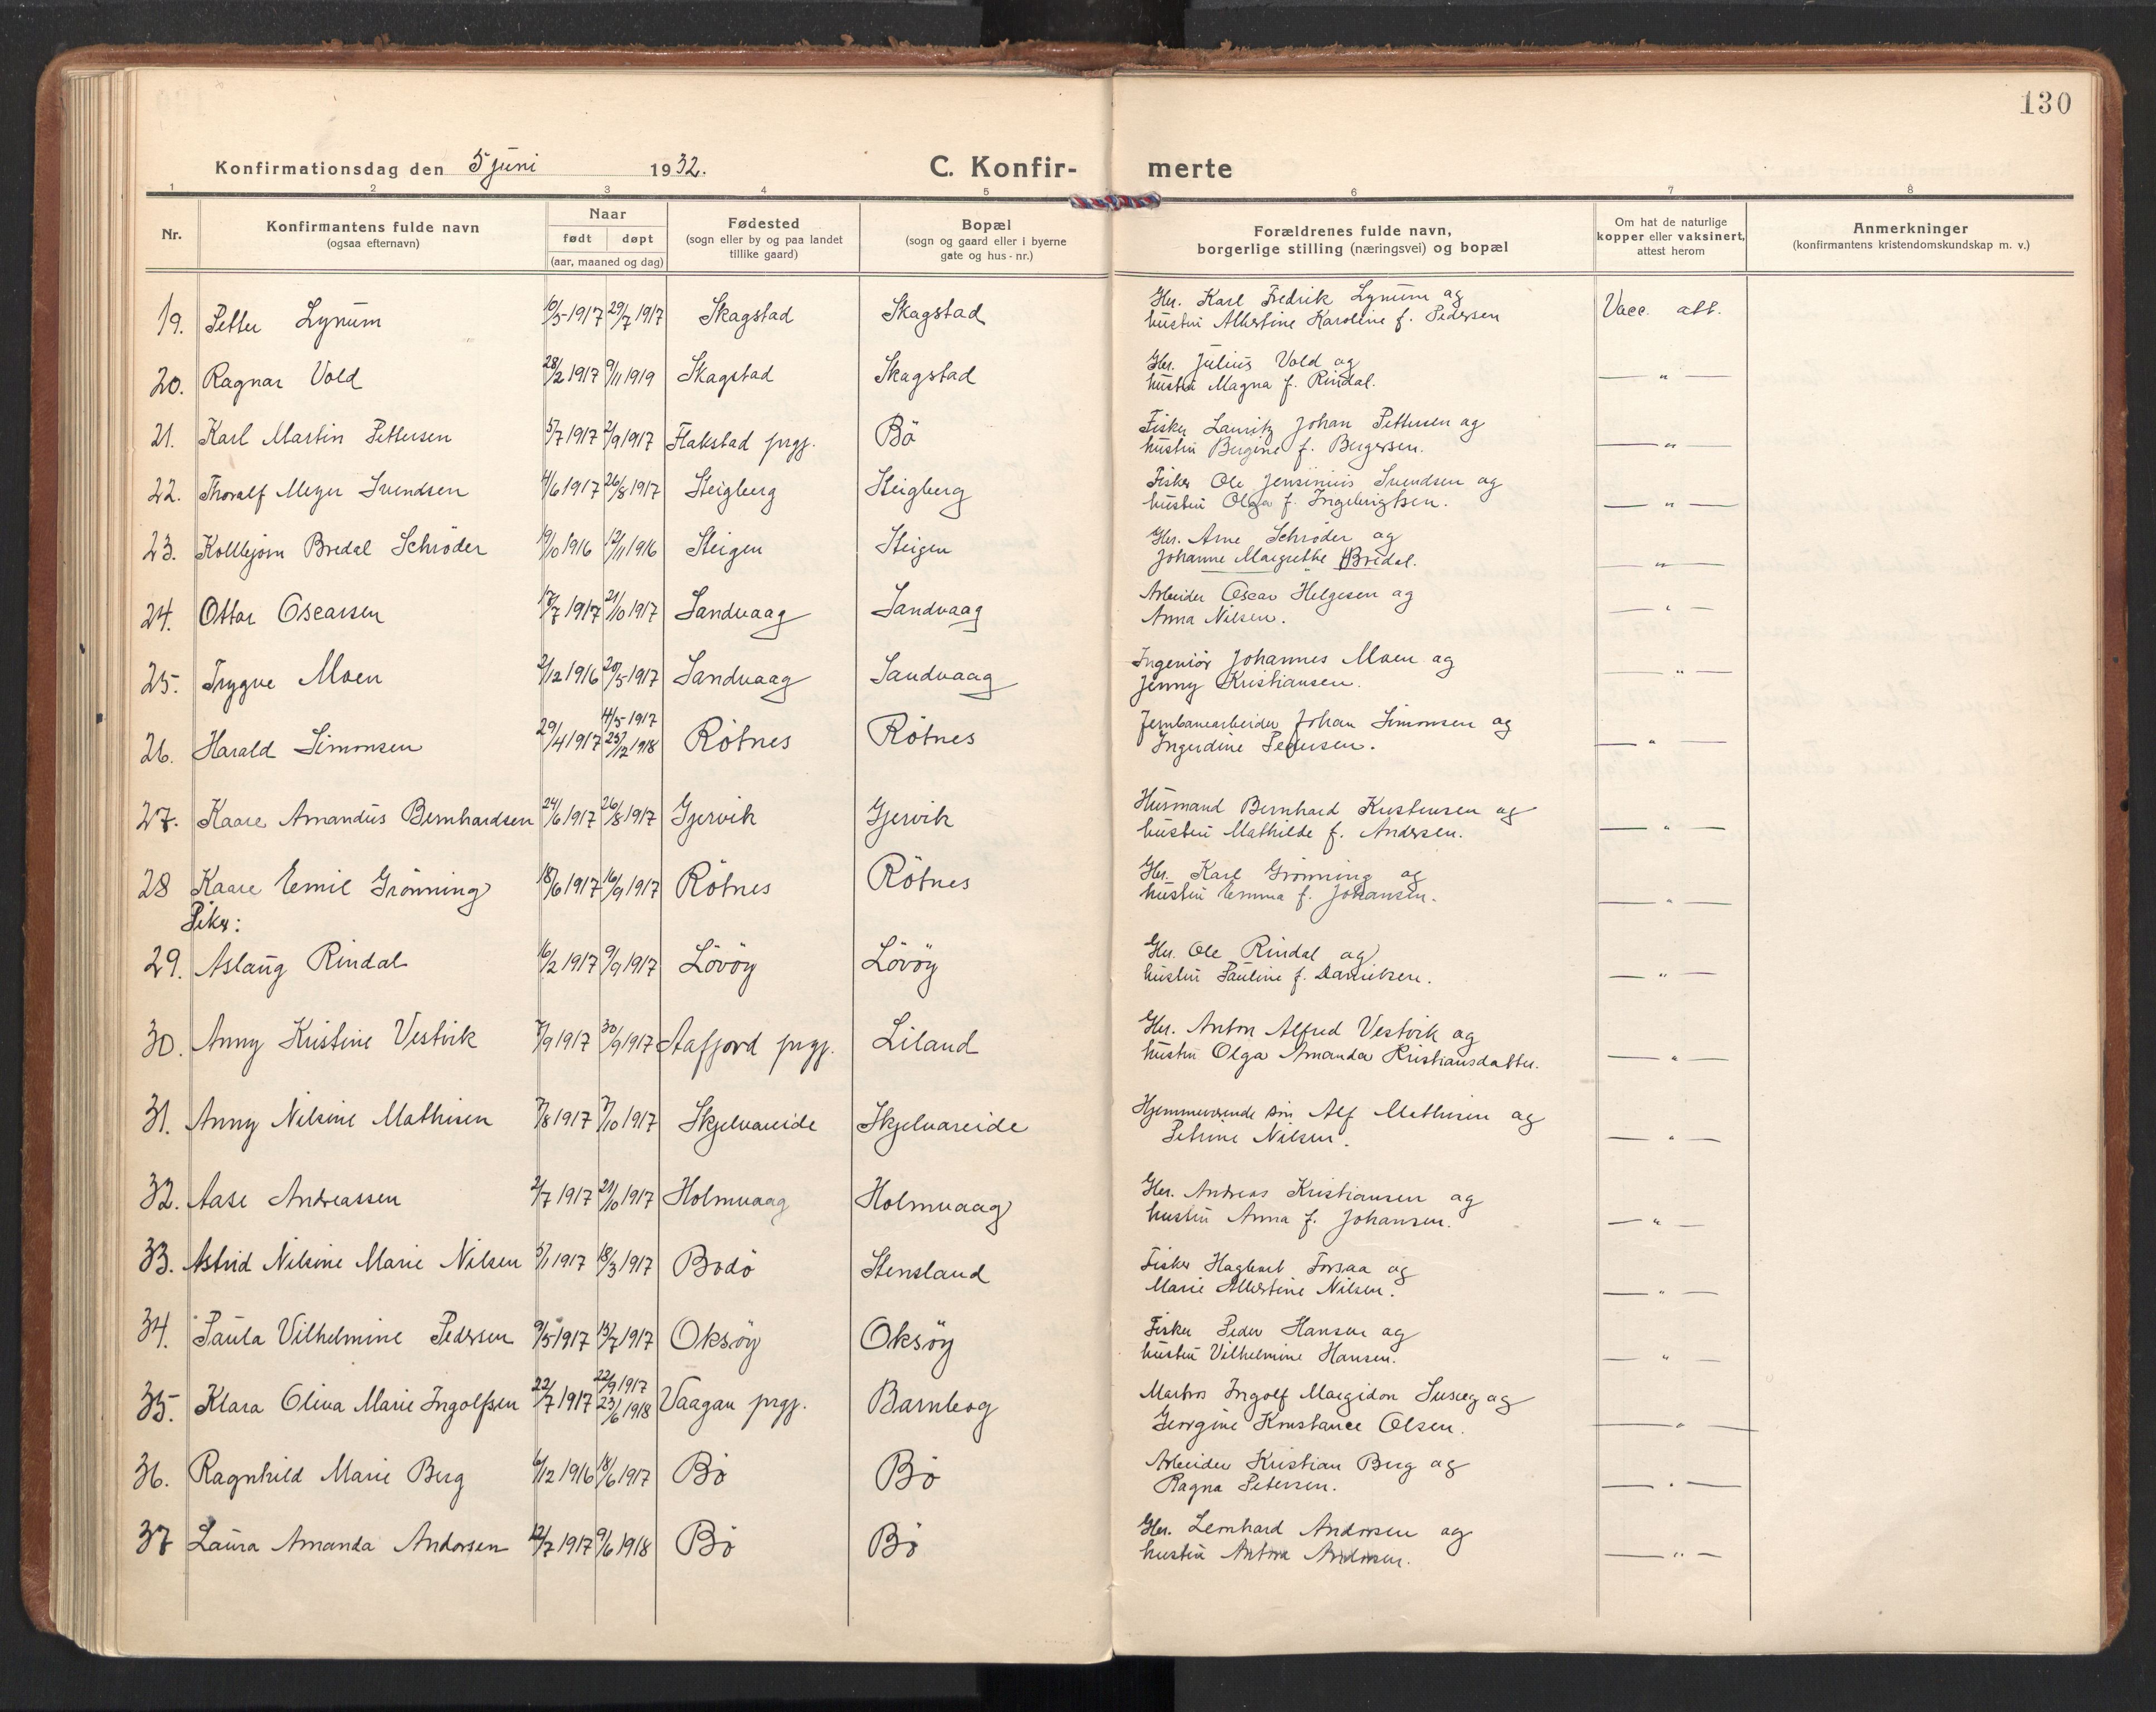 130
Konfirmationsdag den 5 juni 1932.
C. Konfir- merte
1 2 3 4 5 6 7 8
Nr.
Konfirmantens fulde navn
(ogsaa efternavn)
Naar
født døpt
(aar, maaned og dag)
Fødested
(sogn eller by og paa landet
tillike gaard)
Bopæl
(sogn og gaard eller i byerne
gate og hus-nr.)
Forældrenes fulde navn,
borgerlige stilling (næringsvei) og bopæl
Om hat de naturlige
kopper eller vaksinert,
attest herom
Anmerkninger
(konfirmantens kristendomskundskap m. v.)
19. Petter Lynum 10/5 1917 29/7 1917 Skagstad Skagstad Gbr. Karl Fredrik Lynum og Vacc. att.
hustru Albertine Karoline f. Pedersen
20. Ragnar Vold 28/2 1917 9/11 1919 Skagstad Skagstad Gbr. Julius Vold og
hustru Magna f. Rindal. — " —
21. Karl Martin Pettersen 5/7 1917 2/9 1917 Flakstad prgj. Bö Fisker Lauritz Johan Pettersen og
hustru Bergine f. Bergersen. — " —
22. Thoralf Meyer Svendsen 4/6 1917 26/8 1917 Steigberg Steigberg Fisker Ole Jensinius Svendsen og
hustru Olga f. Ingebrigtsen. — " —
23. Kolbjörn Bredal Schröder 19/10 1916 12/11 1916 Steigen Steigen Gbr. Arne Schröder og
Johanne Margrethe Bredal. — " —
24. Ottar Oscarsen 17/7 1917 21/10 1917 Sandvaag Sandvaag Arbeider Oscar Helgesen og
Anna Nilsen. — " —
25. Trygve Moen 2/12 1916 20/5 1917 Sandvaag Sandvaag Ingeniör Johannes Moen og
Jenny Kristiansen. — " —
26. Harald Simonsen 29/4 1917 4/5 1917 Rötnes Rötnes Jernbanearbeider Johan Simonsen og
25/12 1918 Ingerdine Pedersen. — " —
27. Kaare Amandus Bernhardsen 24/6 1917 26/8 1917 Gjervik Gjervik Husmand Bernhard Kristensen og
hustru Mathilde f. Andersen. — " —
28 Kaare Emil Grönning 18/6 1917 16/9 1917 Rötnes Rötnes Gbr. Karl Grönning og
hustru Emma f. Johansen. — " —
Piker:
29. Aslaug Rindal 16/2 1917 9/9 1917 Lövöy Lövöy Gbr. Ole Rindal og
hustru Pauline f. Danielsen. — " —
30. Anny Kristine Vestvik 7/9 1917 30/9 1917 Aafjord prgj. Liland Gbr. Anton Alfred Vestvik og
hustru Olga Amanda Kristiansdatter. — " —
31. Anny Nilsine Mathisen 7/8 1917 7/10 1917 Skjelvareide Skjelvareide Hjemmeværende sön Alf Mathisen og
Petrine Nilsen. — " —
32. Aase Andreassen 2/7 1917 21/10 1917 Holmvaag Holmvaag Gbr. Andreas Kristiansen og
hustru Anna f. Johansen. — " —
33. Astrid Nilsine Marie Nilsen 5/1 1917 18/3 1917 Bodö Stensland Fisker Hagbart Forsaa og
Marie Albertine Nilsen. — " —
34. Paula Vilhelmine Pedersen 9/5 1917 15/7 1917 Oksöy Oksöy Fisker Peder Hansen og
hustru Vilhelmine Hansen. — " —
35. Klara Oliva Marie Ingolfsen 22/7 1917 22/9 1917 Vaagan prgj. Barnbog Matros Ingolf Margidon og
23/6 1918 Georgine Konstance Olsen. — " —
36. Ragnhild Marie Berg 6/12 1916 18/6 1917 Bö Bö Arbeider Kristian Berg og
Ragna Petersen. — " —
37 Laura Amanda Andorsen 12/7 1917 9/6 1918 Bö Bö Gbr. Lernhard Andorsen og
hustru Antora Andorsen. — " —